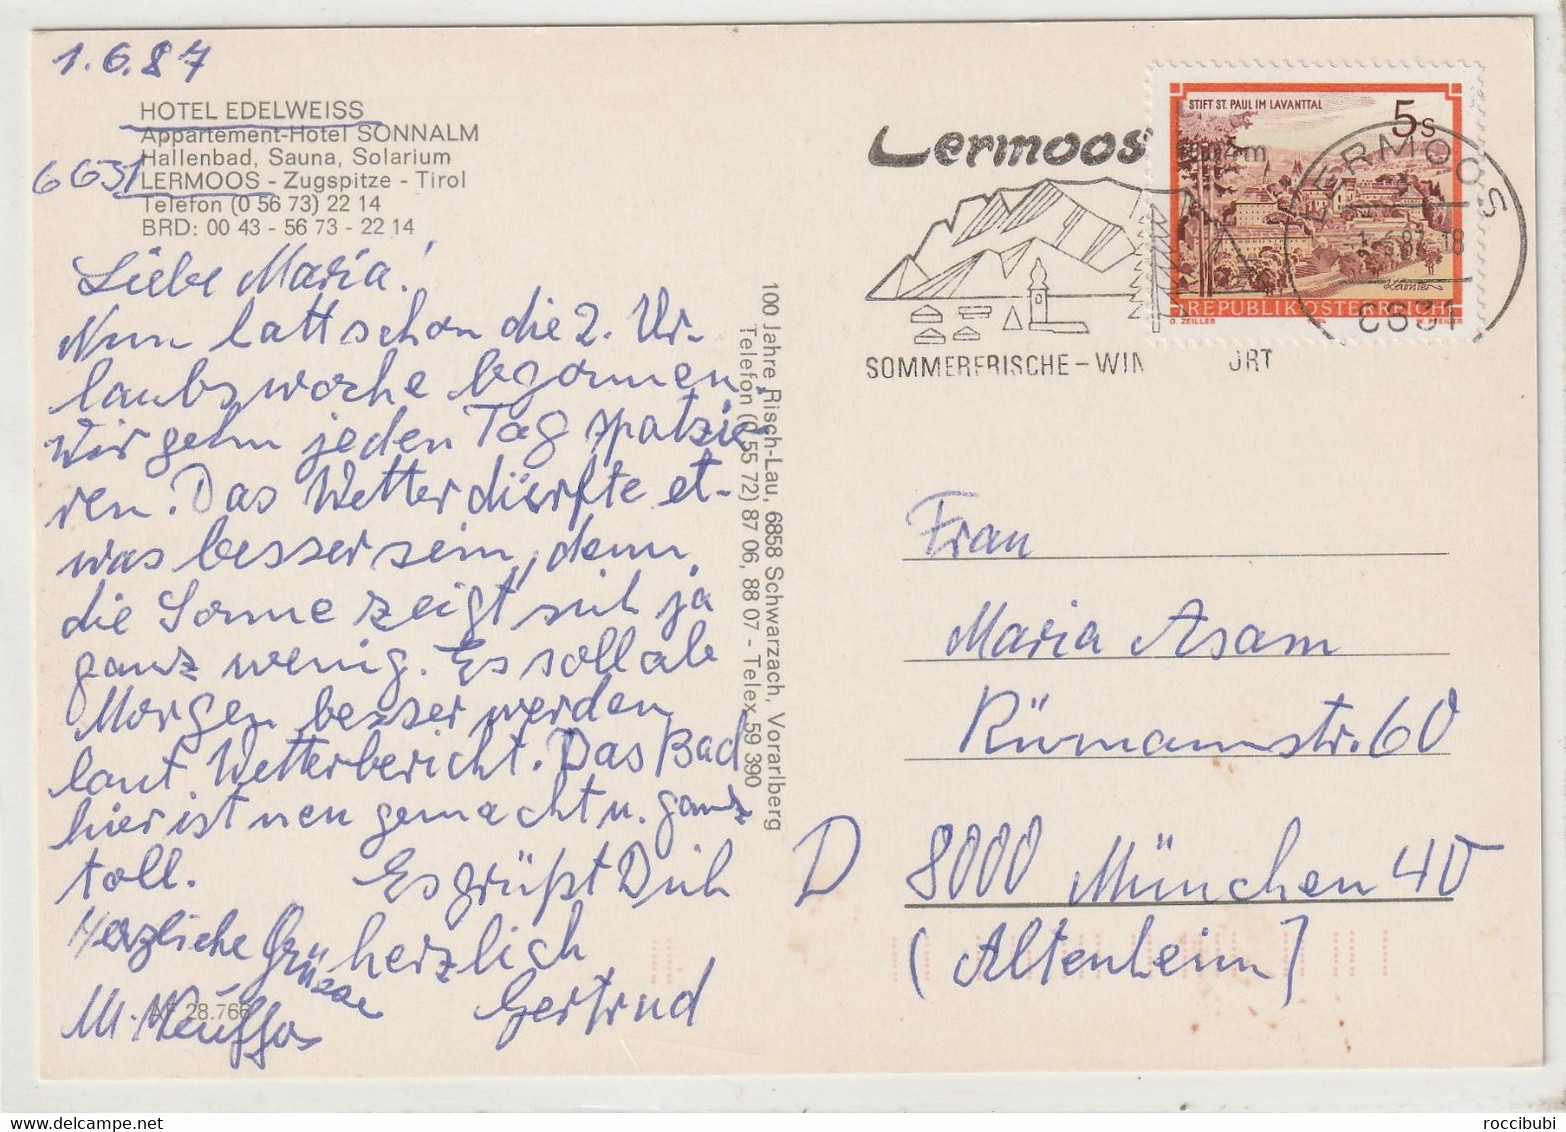 1.6.87
HOTEL EDELWEISS
Appartement-Hotel SONNALM
Hallenbad, Sauna, Solarium
6631 LERMOOS - Zugspitze - Tirol
Telefon (0 56 73) 22 14
BRD: 00 43 - 56 73 - 22 14
Liebe Maria!
Nun hatt schon die 2. Ur-
laubswoche begonnen.
Wir gehn jeden Tag spatzie-
ren. Das Wetter dürfte et-
was besser sein, denn
die Sonne zeigt sich ja
ganz wenig. Es soll ab
Morgen besser werden
laut Wetterbericht. Das Bad
hier ist neu gemacht u. ganz
toll. Es grüßt Dich
herzlich
Gertrud
Herzliche Grüsse
M.
AF 28.766
100 Jahre Risch-Lau, 6858 Schwarzach, Vorarlberg
Telefon (0 55 72) 87 06, 88 07 - Telex 59 390
Lermoos
SOMMERFRISCHE - WIN ORT
STIFT ST. PAUL IM LAVANTTAL
5 S
Kärnten
REPUBLIK ÖSTERREICH
O. ZEILLER
LERMOOS
6631
Frau
Maria Asam
Rümannstr. 60
D 8000 München 40
(Altenheim)
roccibubi